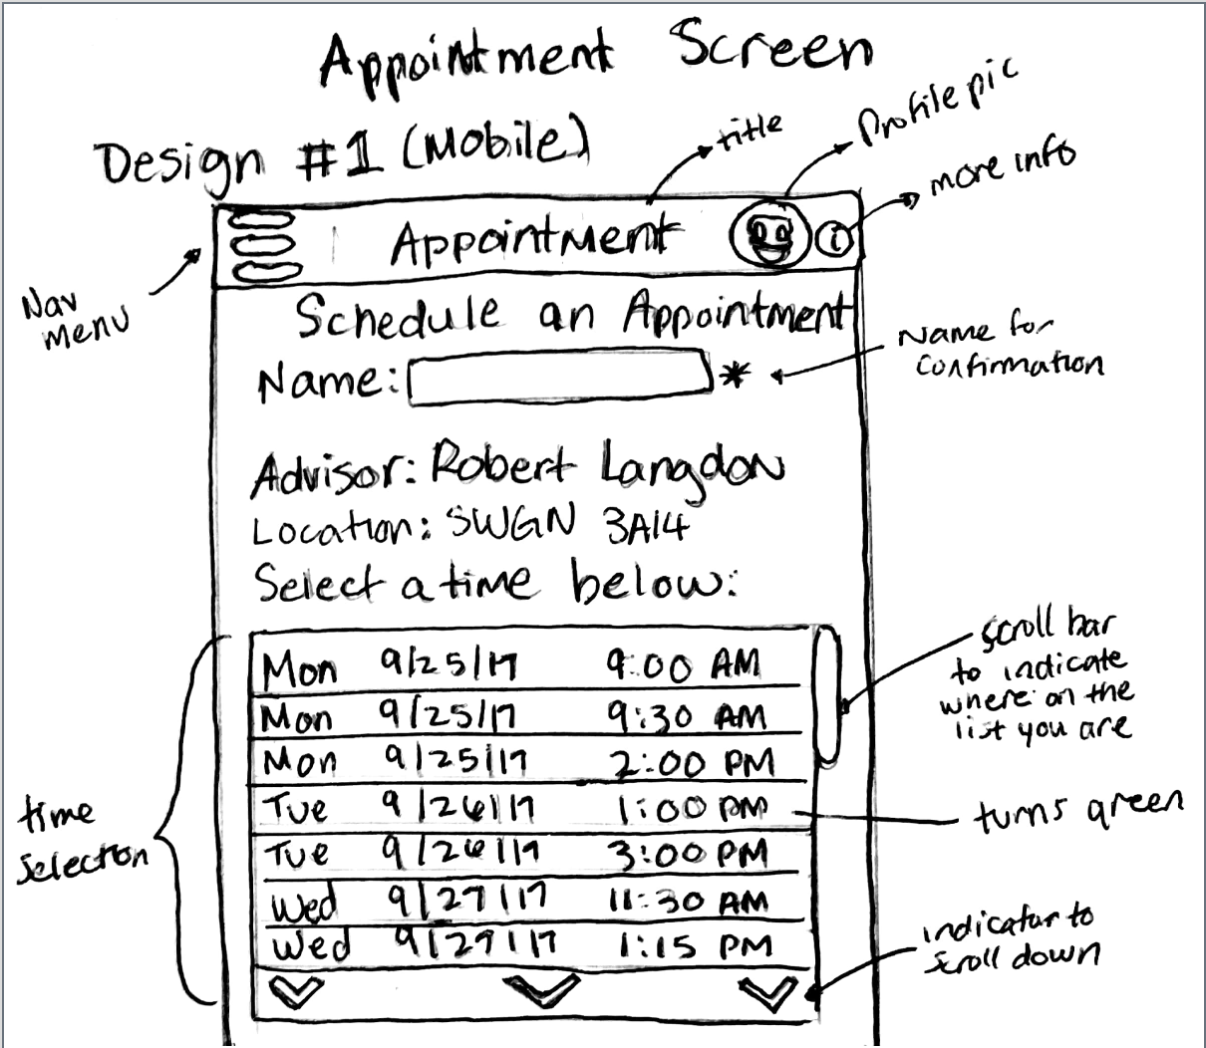 Appointment Screen
Design #1 (Mobile)
title
Profile pic
more info
Nav
menu
Appointment
i
Schedule an Appointment
Name: *
Name for
Confirmation
Advisor: Robert Langdon
Location: SWGN 3A14
Select a time below:
Mon 9/25/17 9:00 AM
Mon 9/25/17 9:30 AM
Mon 9/25/17 2:00 PM
Tue 9/26/17 1:00 PM
Tue 9/26/17 3:00 PM
Wed 9/27/17 11:30 AM
Wed 9/27/17 1:15 PM
scroll bar
to indicate
where on the
list you are
turns green
time
selection
indicator to
scroll down